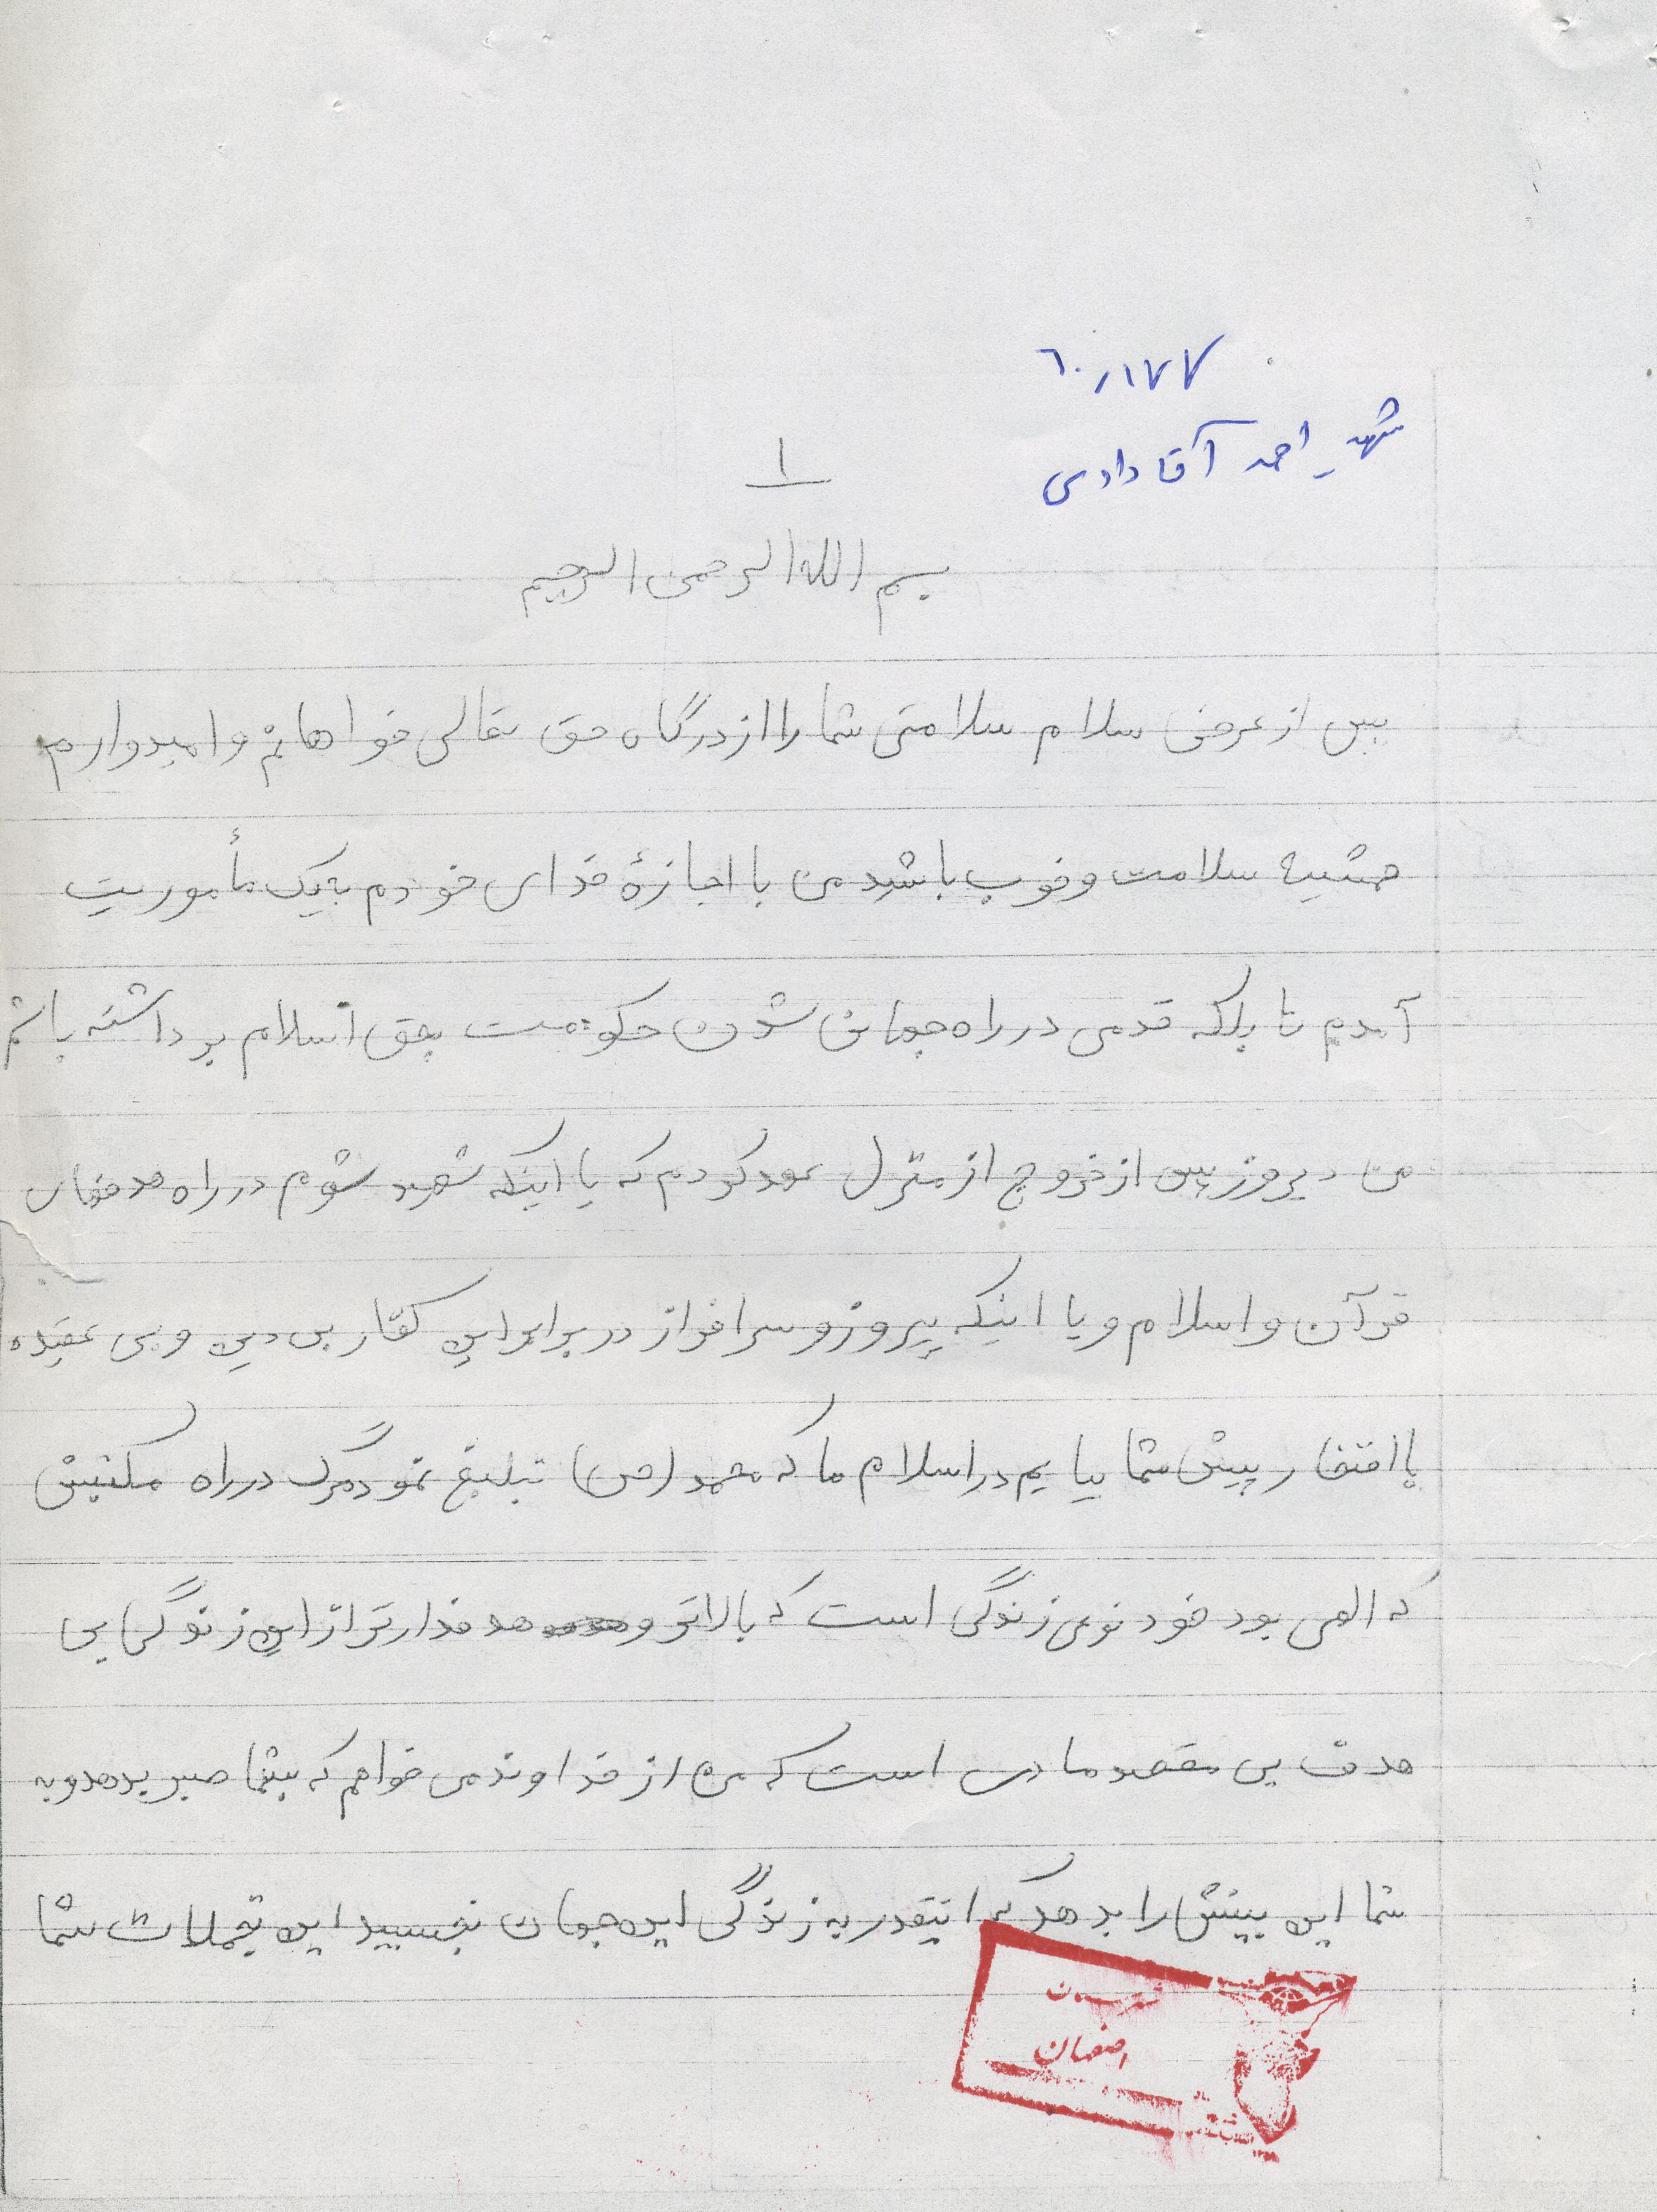 ٦٠٫١٧٧
شهید احمد آقادادی
١
بسم الله الرحمن الرحیم
پس از عرض سلام سلامتی شما را از درگاه حق تعالی خواهانم و امیدوارم
همیشه سلامت و خوب باشید من با اجازهٔ خدای خودم به یک مأموریت
آمدم تا بلکه قدمی در راه جهانی شدن حکومت بحق اسلام برداشته باشم
من دیروز پس از خروج از منزل عهد کردم که یا اینکه شهید شوم در راه هدفهای
قرآن و اسلام و یا اینکه پیروز و سرافراز در برابر این کفار بی دین و بی عقیده
با افتخار پیش شما بیایم در اسلام ما که محمد (ص) تبلیغ نمود مرگ در راه مکتبش
که الهی بود خود نوعی زندگی است که بالاتر و هدفدارتر از این زندگی بی
هدف بی مقصد مادی است که من از خداوند می خواهم که بشما صبر بدهد و به
شما این بینش را بدهد که اینقدر به زندگی این جهان نچسبید این تجملات شما
اصفهان